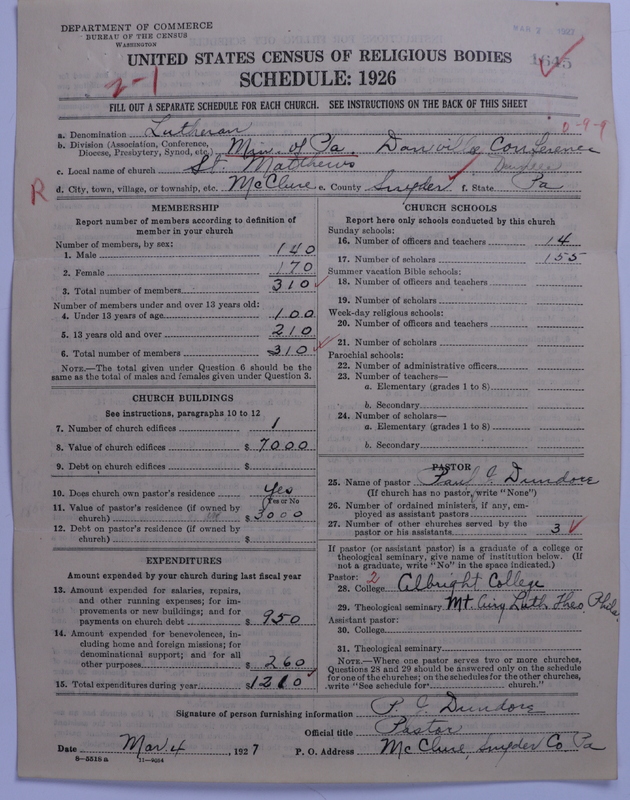 DEPARTMENT OF COMMERCE
BUREAU OF THE CENSUS
WASHINGTON
MAR 7 1927
1645
UNITED STATES CENSUS OF RELIGIOUS BODIES
SCHEDULE: 1926
2-1
FILL OUT A SEPARATE SCHEDULE FOR EACH CHURCH. SEE INSTRUCTIONS ON THE BACK OF THIS SHEET
a. Denomination Lutheran
0-9-9
b. Division (Association, Conference, Diocese, Presbytery, Synod, etc.) Min. of Pa. Danville Conference
c. Local name of church St. Matthews
R
d. City, town, village, or township, etc. McClure e. County Snyder f. State Pa
MEMBERSHIP
Report number of members according to definition of
member in your church
Number of members, by sex:
1. Male 140
2. Female 170
3. Total number of members 310
Number of members under and over 13 years old:
4. Under 13 years of age 100
5. 13 years old and over 210
6. Total number of members 310
NOTE.—The total given under Question 6 should be the
same as the total of males and females given under Question 3.
CHURCH BUILDINGS
See instructions, paragraphs 10 to 12
7. Number of church edifices 1
8. Value of church edifices $ 7000
9. Debt on church edifices $
10. Does church own pastor's residence Yes
(Yes or No)
11. Value of pastor's residence (if owned by
church) $ 3000
12. Debt on pastor's residence (if owned by
church) $
EXPENDITURES
Amount expended by your church during last fiscal year
13. Amount expended for salaries, repairs,
and other running expenses; for im-
provements or new buildings; and for
payments on church debt $ 950
14. Amount expended for benevolences, in-
cluding home and foreign missions; for
denominational support; and for all
other purposes $ 260
15. Total expenditures during year $ 1210
CHURCH SCHOOLS
Report here only schools conducted by this church
Sunday schools:
16. Number of officers and teachers 14
17. Number of scholars 155
Summer vacation Bible schools:
18. Number of officers and teachers
19. Number of scholars
Week-day religious schools:
20. Number of officers and teachers
21. Number of scholars
Parochial schools:
22. Number of administrative officers
23. Number of teachers—
a. Elementary (grades 1 to 8)
b. Secondary
24. Number of scholars—
a. Elementary (grades 1 to 8)
b. Secondary
PASTOR
25. Name of pastor Paul C. Dundore
(If church has no pastor, write "None")
26. Number of ordained ministers, if any, em-
ployed as assistant pastors
27. Number of other churches served by the
pastor or his assistants 3
If pastor (or assistant pastor) is a graduate of a college or
theological seminary, give name of institution below. (If
not a graduate, write "No" in the space indicated.)
Pastor: 2
28. College Albright College
29. Theological seminary Mt. Airy Luth. Theo. Phila.
Assistant pastor:
30. College
31. Theological seminary
NOTE.—Where one pastor serves two or more churches,
Questions 28 and 29 should be answered only on the schedule
for one of the churches; on the schedules for the other churches,
write "See schedule for church."
Signature of person furnishing information P. C. Dundore
Official title Pastor
Date Mar. 4, 1927 P. O. Address McClure, Snyder Co. Pa
8—5518 a 11—9264